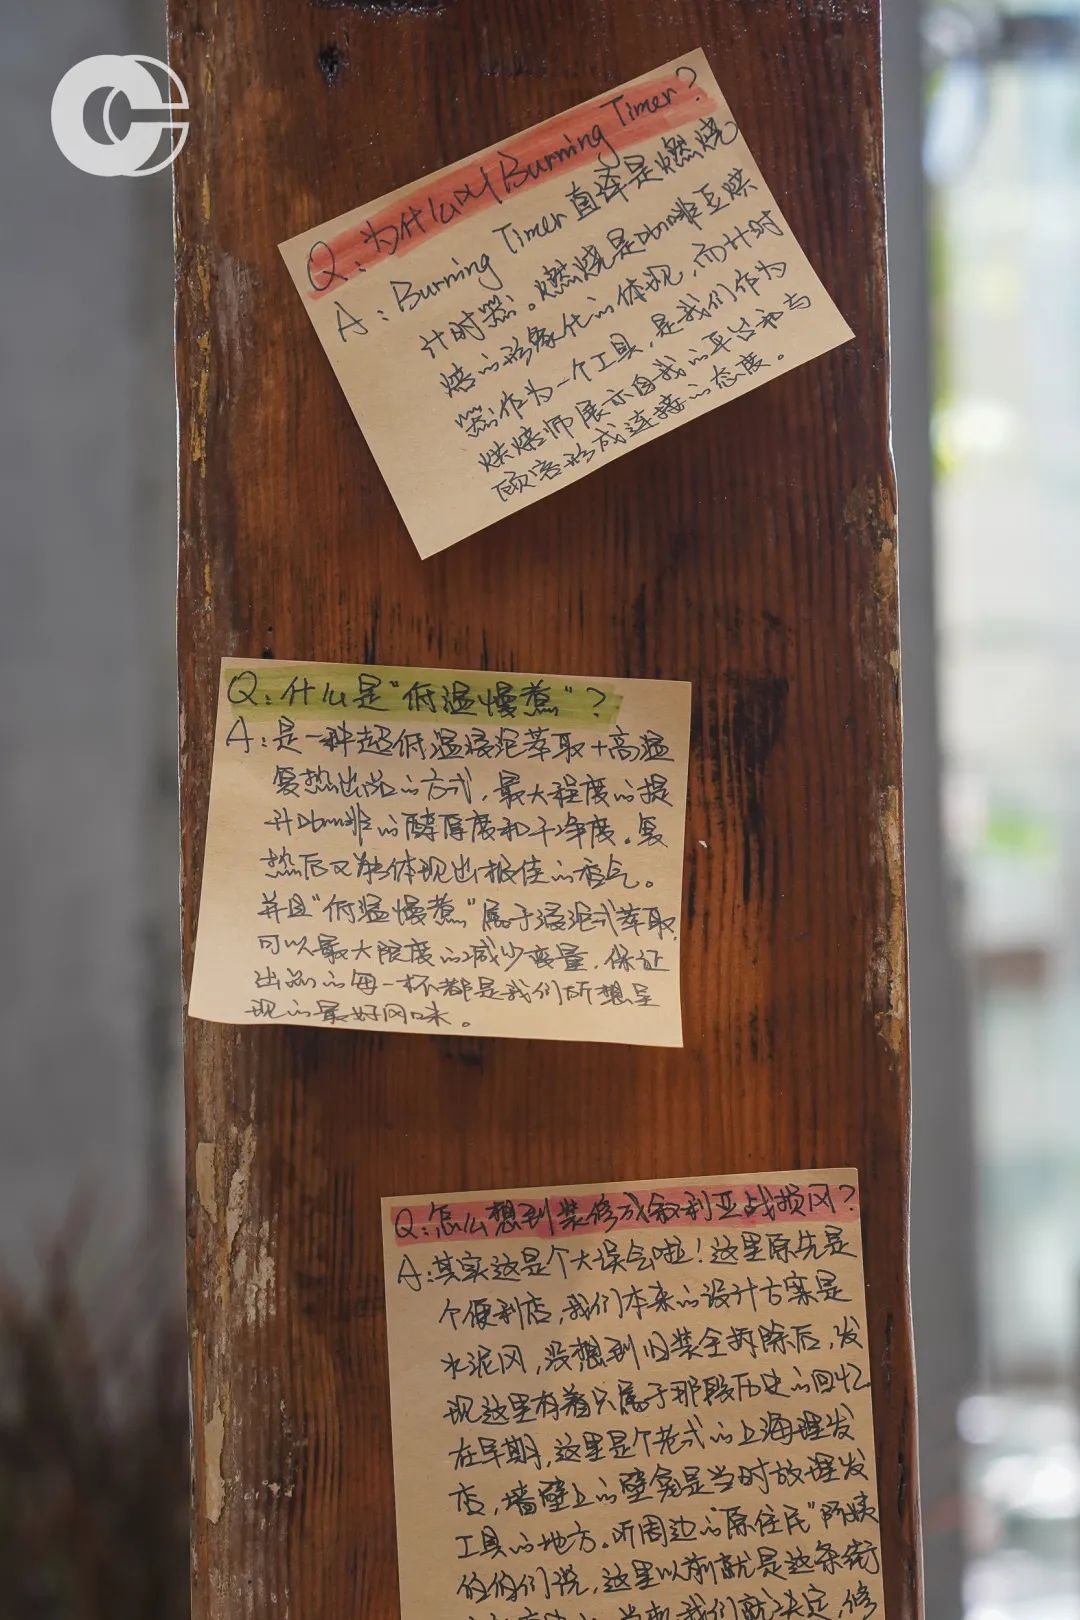 Q:为什么叫Burning Timer?
A:Burning Timer直译是燃烧
计时器。燃烧是咖啡豆烘
焙的形象化的体现,而计时
器作为一个工具,是我们作为
烘焙师展示自我的平台和与
顾客形成连接的态度。
Q:什么是“低温慢煮”?
A:是一种超低温浸泡萃取+高温
复热出品的方式,最大程度的提
升咖啡的醇厚度和干净度。复
热后又能体现出极佳的香气。
并且“低温慢煮”属于浸泡式萃取,
可以最大限度的减少变量,保证
出品的每一杯都是我们所想呈
现的最好风味。
Q:怎么想到装修成叙利亚战损风?
A:其实这是个大误会啦!这里原先是
个便利店,我们本来的设计方案是
水泥风,没想到旧装全拆除后,发
现这里有着只属于那段历史的回忆。
在早期,这里是个老式的上海理发
店,墙壁上的壁龛是当时放理发
工具的地方。听周边的“原住民”阿姨
伯伯们说,这里以前就是这条街
我们就决定,修